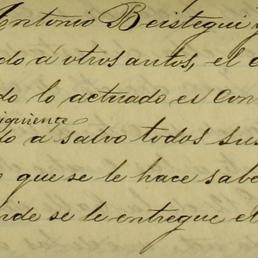 Antonio Beistegui y
do á otros autos, el
do lo actuado es con
siguiente
do á salvo todos sus
que se le hace sabe
ide se le entregue el